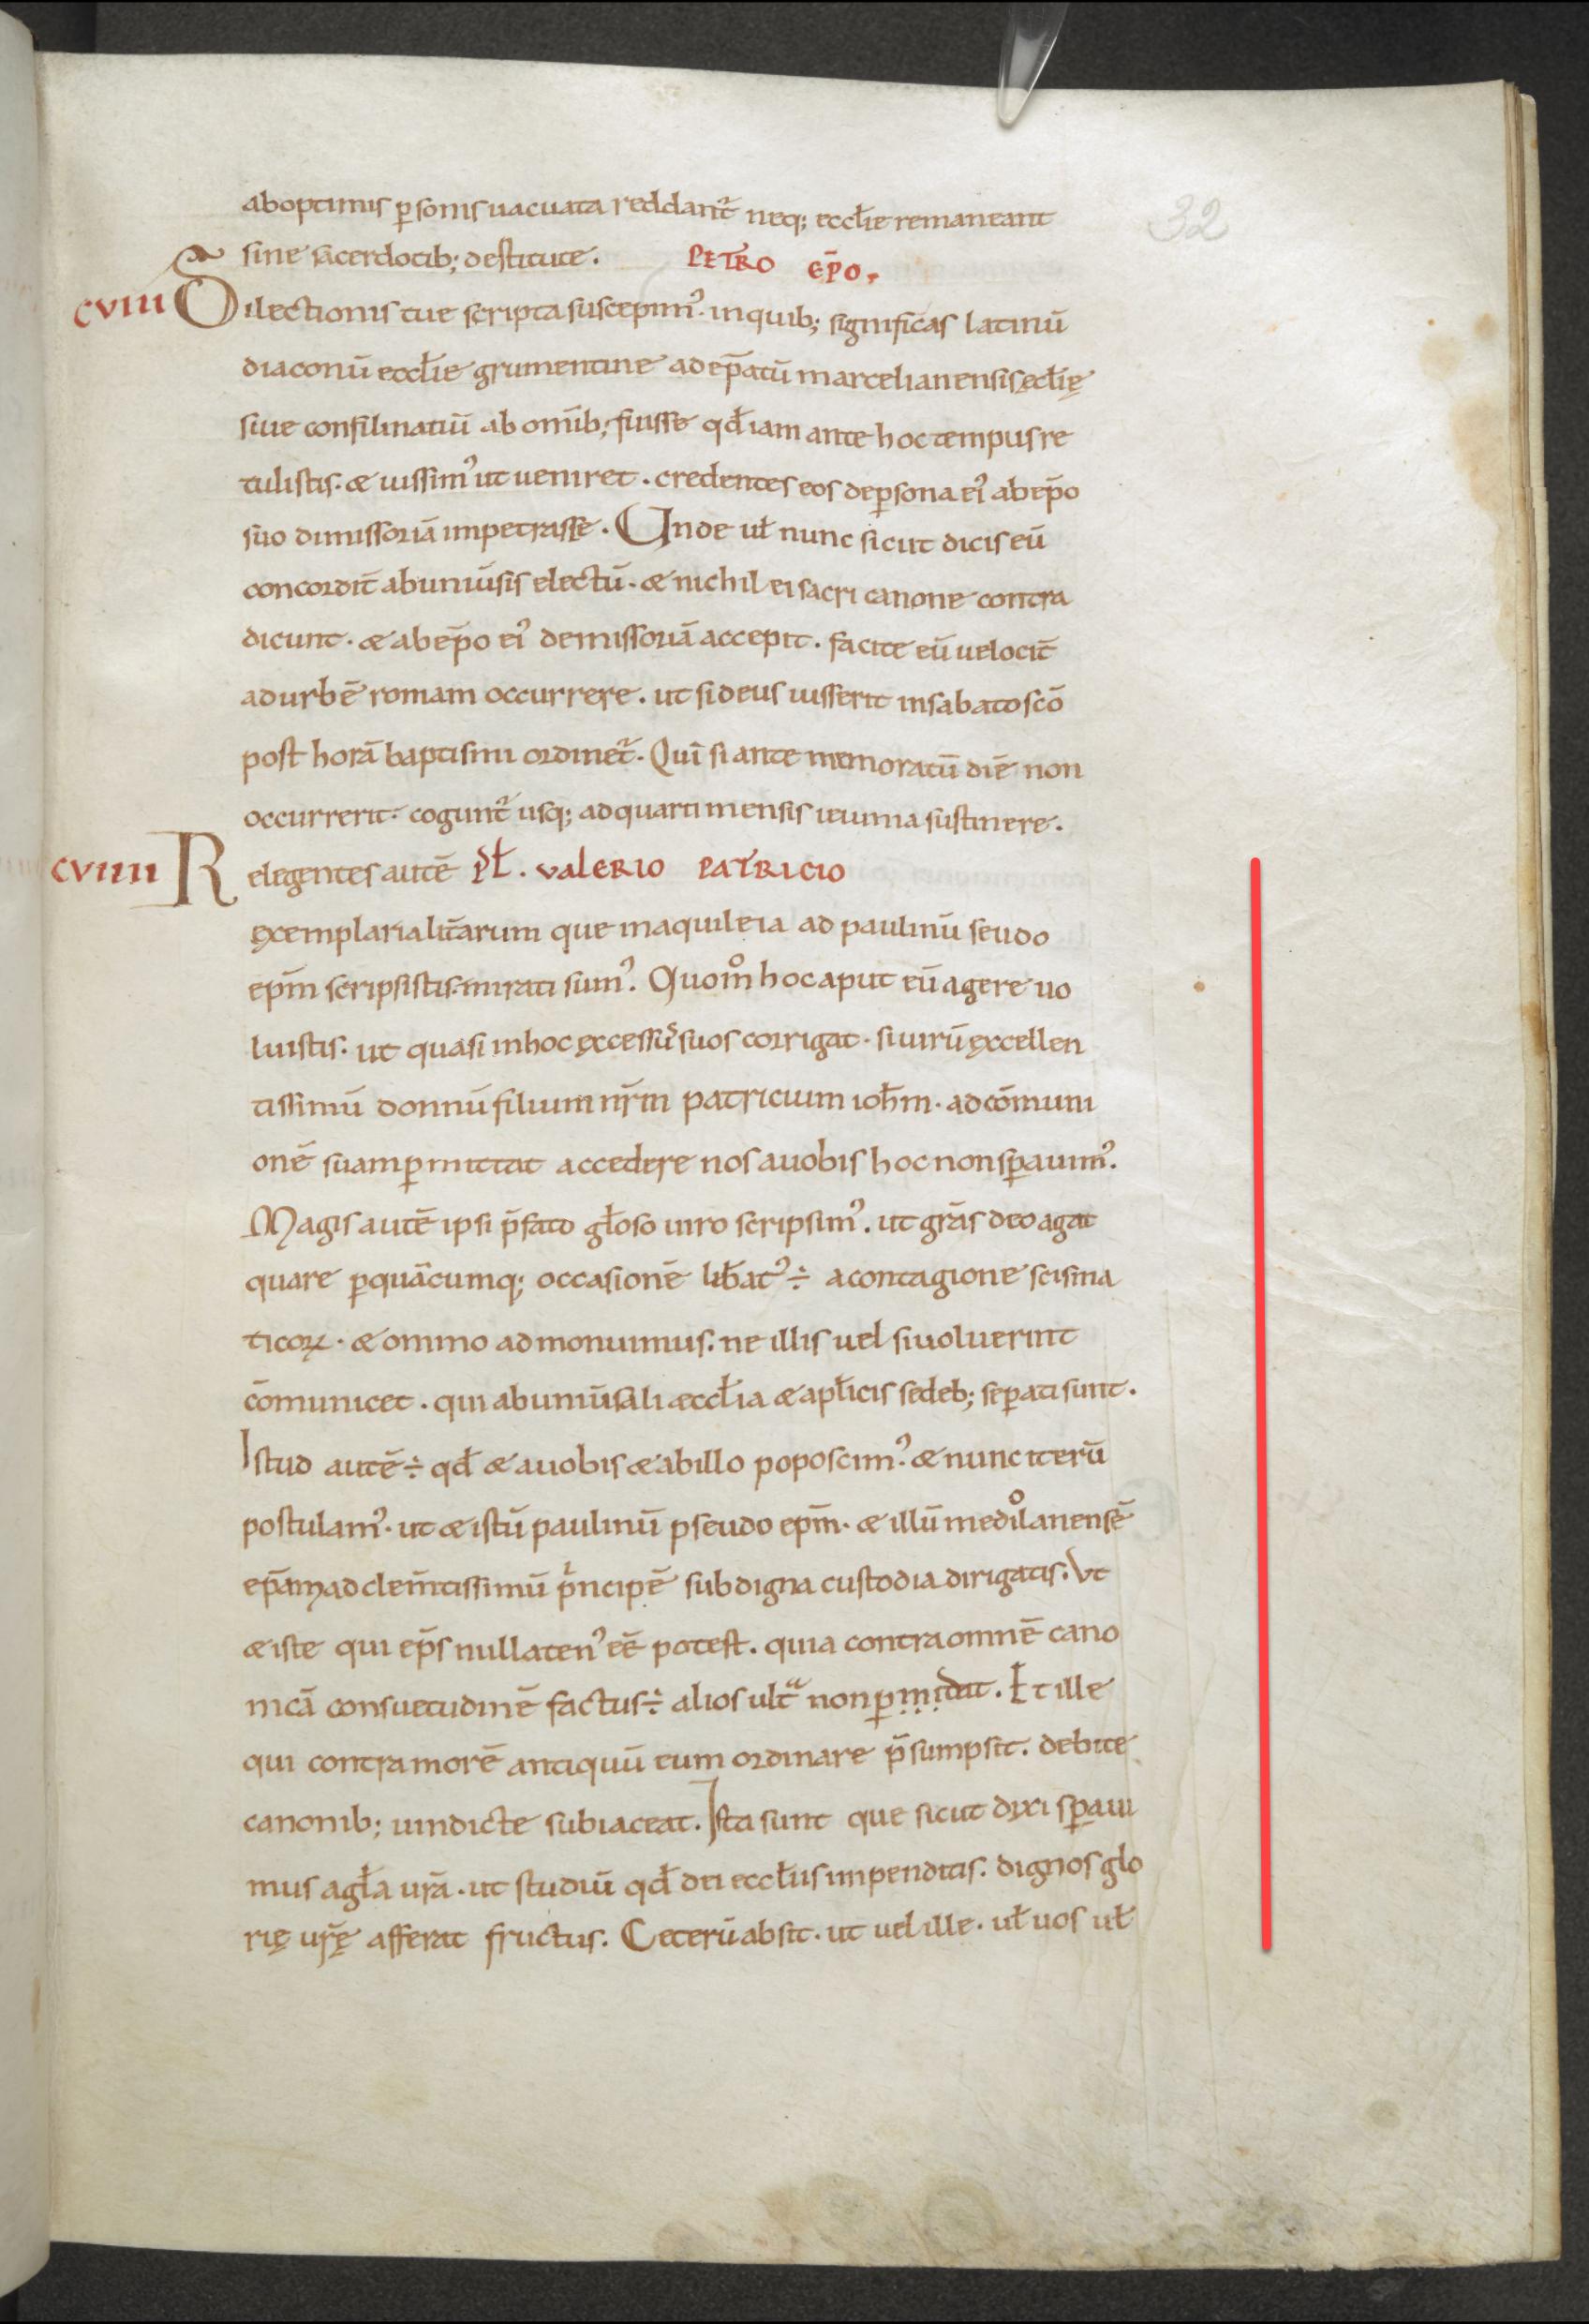 aboptimis p̱sonis uacuata reddant᷑ neq; eccłie remaneant
sine sacerdotib; destitute. PETRO EP̄O.
CVIII Dilectionis tue scripta suscepim᷒. inquib; significas latinū
diaconū eccłie grumentine ad ep̄atū marcelianensis ęcłię
siue consilinatiū ab om̄ib; fuisse qđ iam ante hoc tempus re
tulistis. & iussim᷒ ut ueniret. credentes eos de ꝑsona ei᷒ ab ep̄o
suo dimissoriā impetrasse. Unde uł nunc sicut dicis eū
concordit̄ abuniūsis electū. & nichil ei sacri canone contra
dicunt. & ab ep̄o ei᷒ demissoriā accepit. facite eū uelocit̄
ad urbē romam occurrere. ut si deus iusserit in sabato sc̄o
post horā baptismi ordinet᷑. Qui si ante memoratū diē non
occurrerit. cogunt᷑ usq; ad quarti mensis ieiunia sustinere.
CVIIII Relegentes autē PŁ. VALERIO PATRICIO
ęxemplaria lit̄arum que in aquileia ad paulinū seudo
ep̄m scripsistis. mirati sum᷒. Quom̊ hoc aput eū agere uo
luistis. ut quasi in hoc ęxcessus suos corrigat. si uirū ęxcellen
tissimū donnū filium nr̄m patricium ioħm. ad cōmuni
onē suam ꝑmittat accedere nos auobis hoc non sꝑauim᷒.
Magis autē ipsi p̄fato gł̄oso uiro scripsim᷒. ut grās deo agat
quare ꝑ quācumq; occasionē lib̄at᷒ ÷ a contagione scisma
ticoꝝ. & omino admonuimus. ne illis uel si uoluerint
cōmunicet. qui ab uniūsali æccłia & apłicis sedeb; seꝑati sunt.
Istud autē ÷ qđ & auobis & ab illo poposcim᷒. & nunc iterū
postulam᷒. ut & istū paulinū pseudo ep̄m. & illū medilo̊anensē
ep̄am ad clem̄tissimū p̄ncipē sub digna custodia dirigatis. Vt
& iste qui ep̄s nullaten᷒ eē potest. quia contra omnē cano
nicā consuetudinē factus ÷ alios ultͣ non ꝑmidat. Et ille
qui contra morē antiquū eum ordinare p̄sumpsit. debite
canonib; uindicte subiaceat. Ista sunt que sicut dixi sꝑaui
mus agł̄a urā. ut studiū qđ dei eccłiis impenditis. dignos glo
rię ur̄ę afferat fructus. Ceterū absit. ut uel ille. uł uos uł